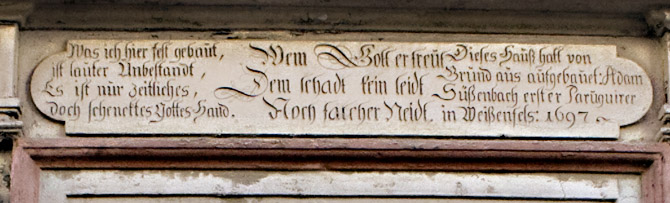 Was ich hier fest gebaut,
ist lauter Unbestandt,
Es ist nür zeitliches,
doch schenettes Gottes Hand.
Wem Gott erfreüt
Dem schadt kein leidt
Noch falcher Neidt.
Dieses Hauß hatt von
Gründ aus aufgebauet: Adam
Süßenbach erster Parüquirer
in Weißenfels: 1697